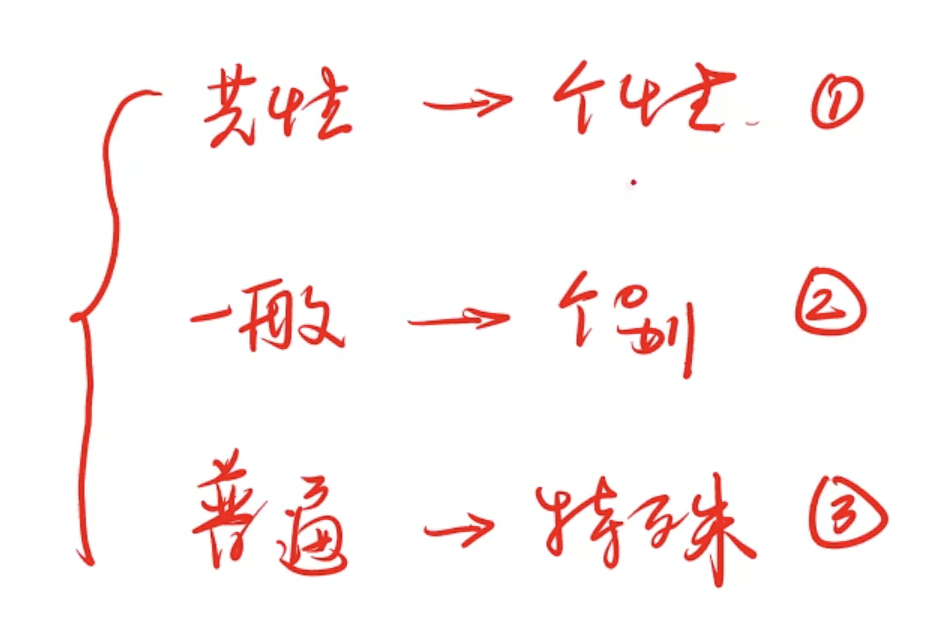 共性 → 个性 ①
一般 → 个别 ②
普遍 → 特殊 ③